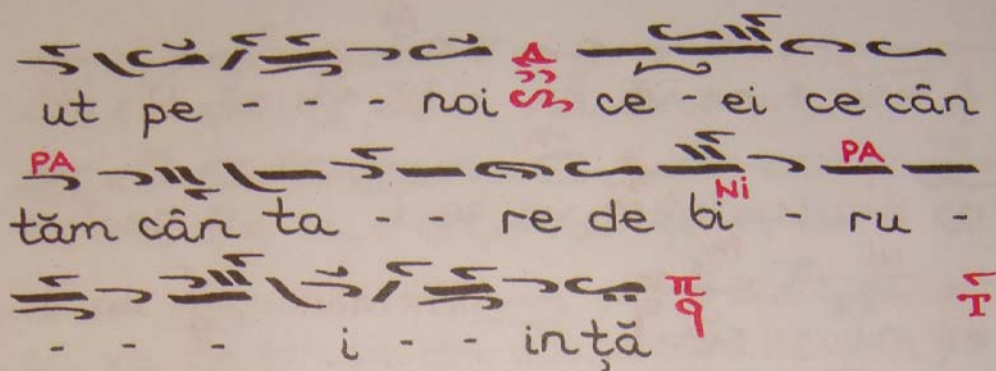 ut pe - - - noi ce - ei ce cân
PA PA
tăm cân ta - - re de bi - ru -
Ni
- - - i - - in ță
π q